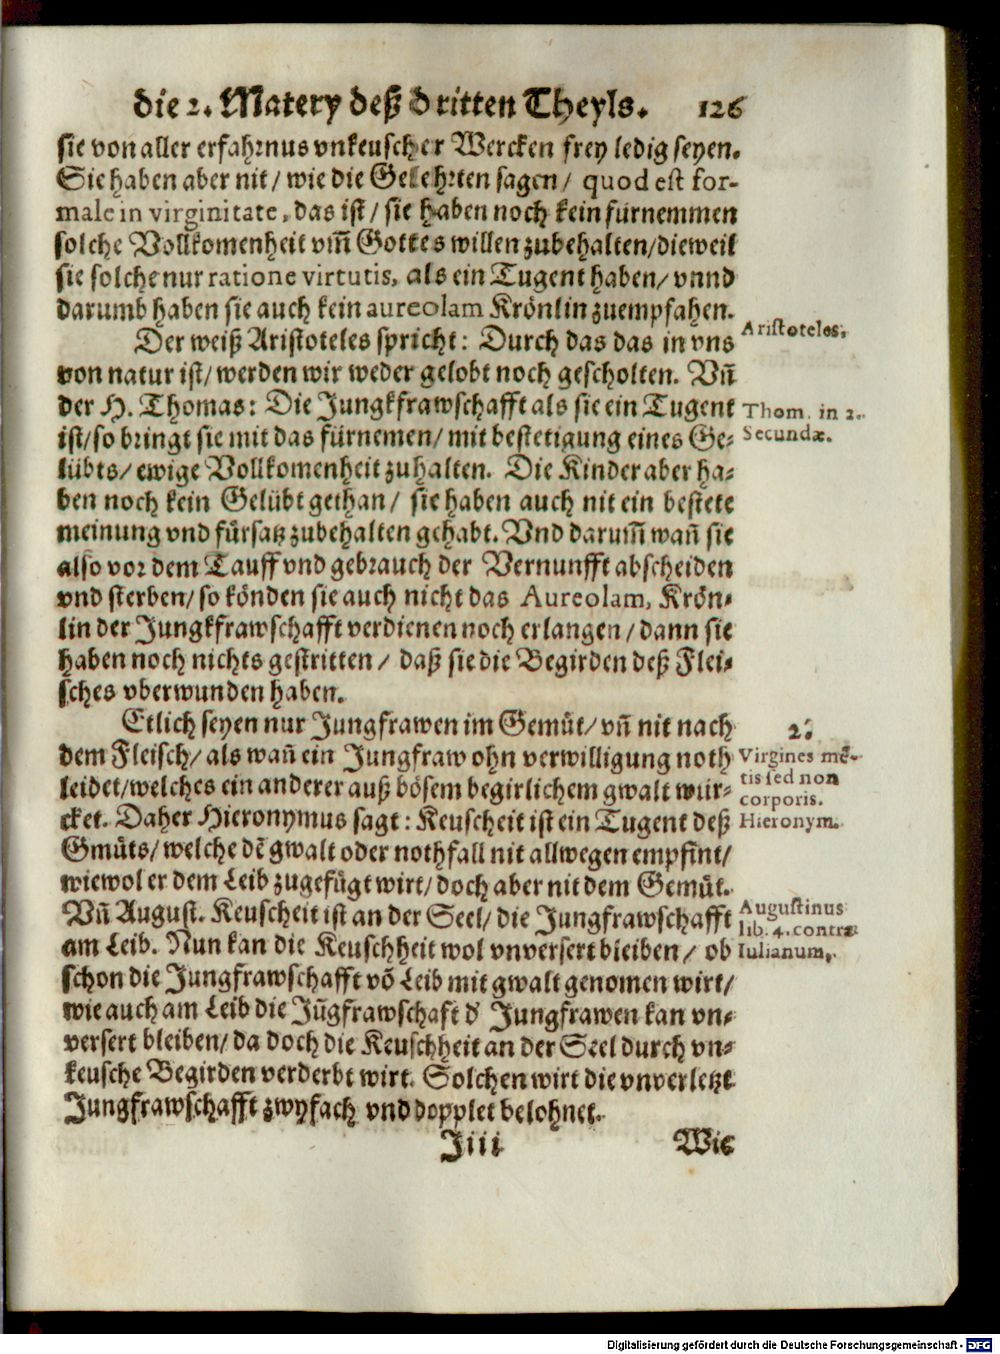 die 2. Matery deß dritten Theyls. 126
sie von aller erfahrnus vnkeuscher Wercken frey ledig seyen.
Sie haben aber nit / wie die Gelehrten sagen / quod est for-
male in virginitate, das ist / sie haben noch kein fürnemmen
solche Vollkomenheit vm̃ Gottes willen zubehalten / dieweil
sie solche nur ratione virtutis, als ein Tugent haben / vnnd
darumb haben sie auch kein aureolam Krönlin zuempfahen.
Der weiß Aristoteles spricht: Durch das das in vns
Aristoteles.
von natur ist / werden wir weder gelobt noch gescholten. Vñ
der H. Thomas: Die Jungkfrawschafft als sie ein Tugent
Thom. in 2.
ist / so bringt sie mit das fürnemen / mit bestetigung eines Ge-
Secundæ.
lübts / ewige Vollkomenheit zuhalten. Die Kinder aber ha-
ben noch kein Gelübt gethan / sie haben auch nit ein bestete
meinung vnd fürsatz zubehalten gehabt. Vnd darum̃ wañ sie
also vor dem Tauff vnd gebrauch der Vernunfft abscheiden
vnd sterben / so könden sie auch nicht das Aureolam, Krön-
lin der Jungkfrawschafft verdienen noch erlangen / dann sie
haben noch nichts gestritten / daß sie die Begirden deß Flei-
sches vberwunden haben.
Etlich seyen nur Jungfrawen im Gemüt / vñ nit nach
2.
dem Fleisch / als wañ ein Jungfraw ohn verwilligung noth
Virgines mẽ-
leidet / welches ein anderer auß bösem begirlichem gwalt wür-
tis sed non
corporis.
cket. Daher Hieronymus sagt: Keuscheit ist ein Tugent deß
Hieronym.
Gmüts / welche dẽ gwalt oder nothfall nit allwegen empfint /
wiewol er dem Leib zugefügt wirt / doch aber nit dem Gemüt.
Vñ August. Keuscheit ist an der Seel / die Jungfrawschafft
Augustinus
lib. 4. contra
am Leib. Nun kan die Keuschheit wol vnversert bleiben / ob
Iulianum,
schon die Jungfrawschafft võ Leib mit gwalt genomen wirt /
wie auch am Leib die Jũgfrawschaft d' Jungfrawen kan vn-
versert bleiben / da doch die Keuschheit an der Seel durch vn-
keusche Begirden verderbt wirt. Solchen wirt die vnverletzt
Jungfrawschafft zwyfach vnd dopplet belohnet.
J iii Wie
Digitalisierung gefördert durch die Deutsche Forschungsgemeinschaft - DFG